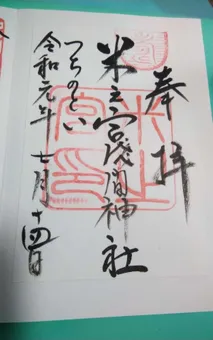 奉拝
米之宮浅間神社
つちのとい
令和元年 七月十四日
米之宮印